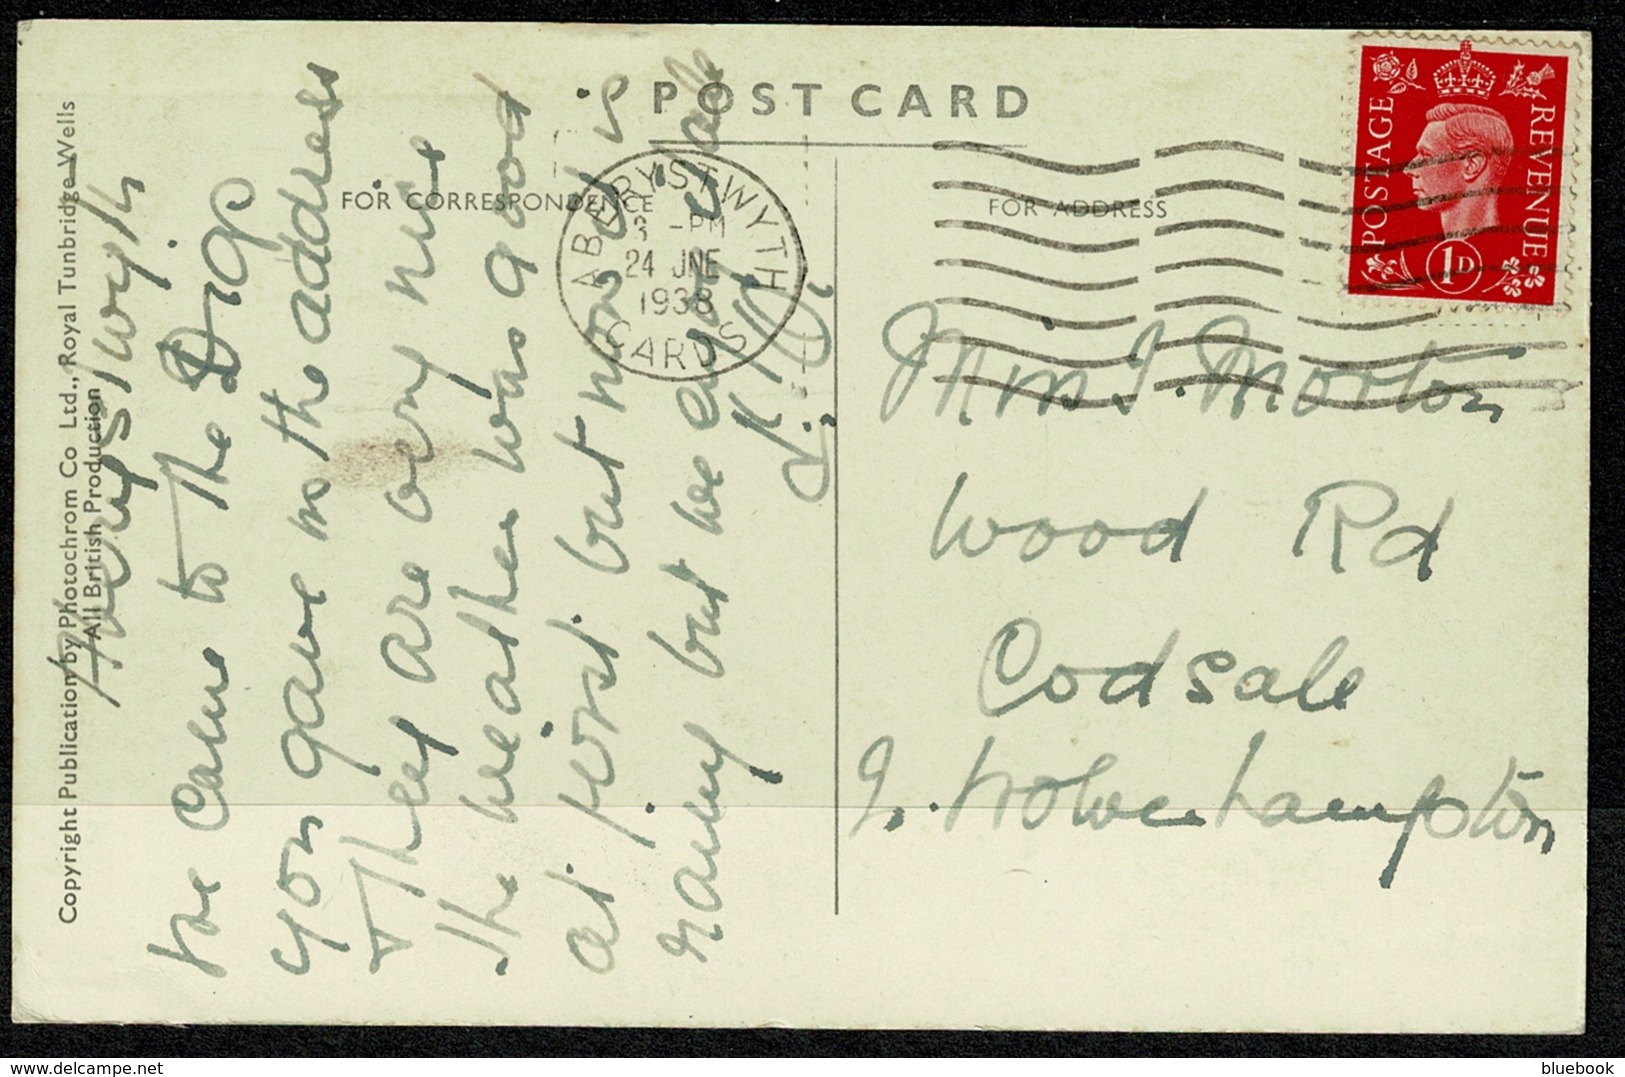 POST CARD
FOR CORRESPONDENCE
FOR ADDRESS
Copyright Publication by Photochrom Co Ltd., Royal Tunbridge Wells
All British Production
Aberystwyth
We came to the Digs
you gave us the address
They are very nice
the weather was good
at first but now it is
rainy but we enjoy
ABERYSTWYTH
3 -PM
24 JNE
1938
CARDS
POSTAGE
REVENUE
1D
Morton
Wood Rd
Codsale
Wolverhampton
delcampe.net
bluebook